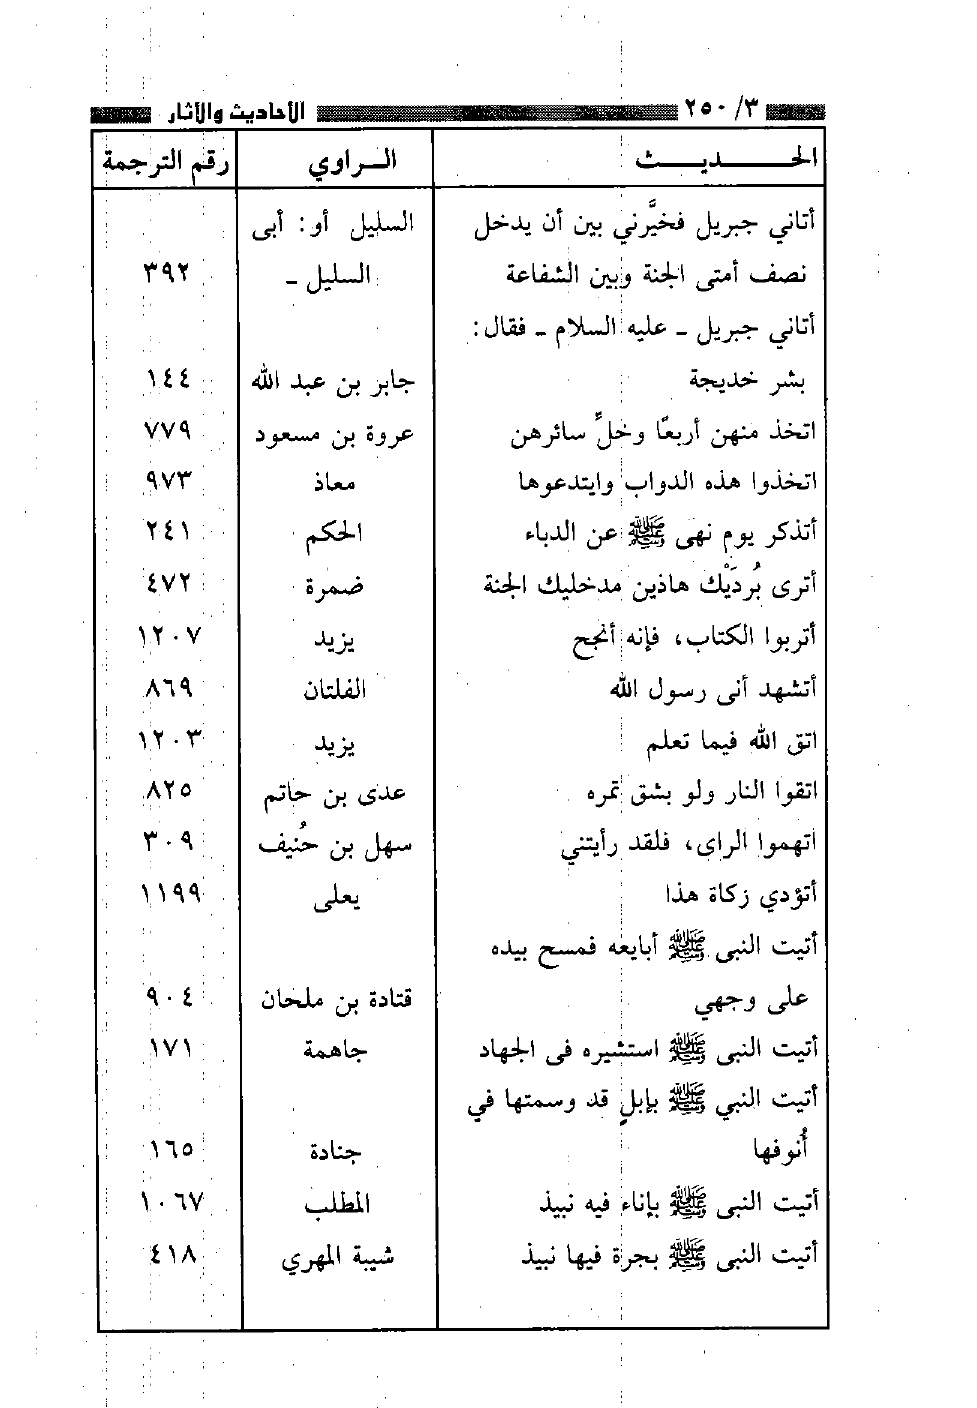 ٢٥٠/٣ الأحاديث والآثار
الحـــديـــث الـــراوي رقم الترجمة
أتاني جبريل فخيَّرني بين أن يدخل السليل أو: أبى
نصف أمتى الجنة وبين الشفاعة السليل ـ ٣٩٢
أتاني جبريل ـ عليه السلام ـ فقال:
بشر خديجة جابر بن عبد الله ١٤٤
اتخذ منهن أربعًا وخلِّ سائرهن عروة بن مسعود ٧٧٩
اتخذوا هذه الدواب وايتدعوها معاذ ٩٧٣
أتذكر يوم نهى ﷺ عن الدباء الحكم ٢٤١
أترى بُردَيْك هاذين مدخليك الجنة ضمرة ٤٧٢
أتربوا الكتاب، فإنه أنجح يزيد ١٢٠٧
أتشهد أنى رسول الله الفلتان ٨٦٩
اتق الله فيما تعلم يزيد ١٢٠٣
اتقوا النار ولو بشق تمره عدى بن حاتم ٨٢٥
اتهموا الراى، فلقد رأيتني سهل بن حُنيف ٣٠٩
أتؤدي زكاة هذا يعلى ١١٩٩
أتيت النبى ﷺ أبايعه فمسح بيده
على وجهي قتادة بن ملحان ٩٠٤
أتيت النبى ﷺ استشيره فى الجهاد جاهمة ١٧١
أتيت النبي ﷺ بإبلٍ قد وسمتها في
أُنوفها جنادة ١٦٥
أتيت النبى ﷺ بإناء فيه نبيذ المطلب ١٠٦٧
أتيت النبى ﷺ بجرة فيها نبيذ شيبة المهري ٤١٨